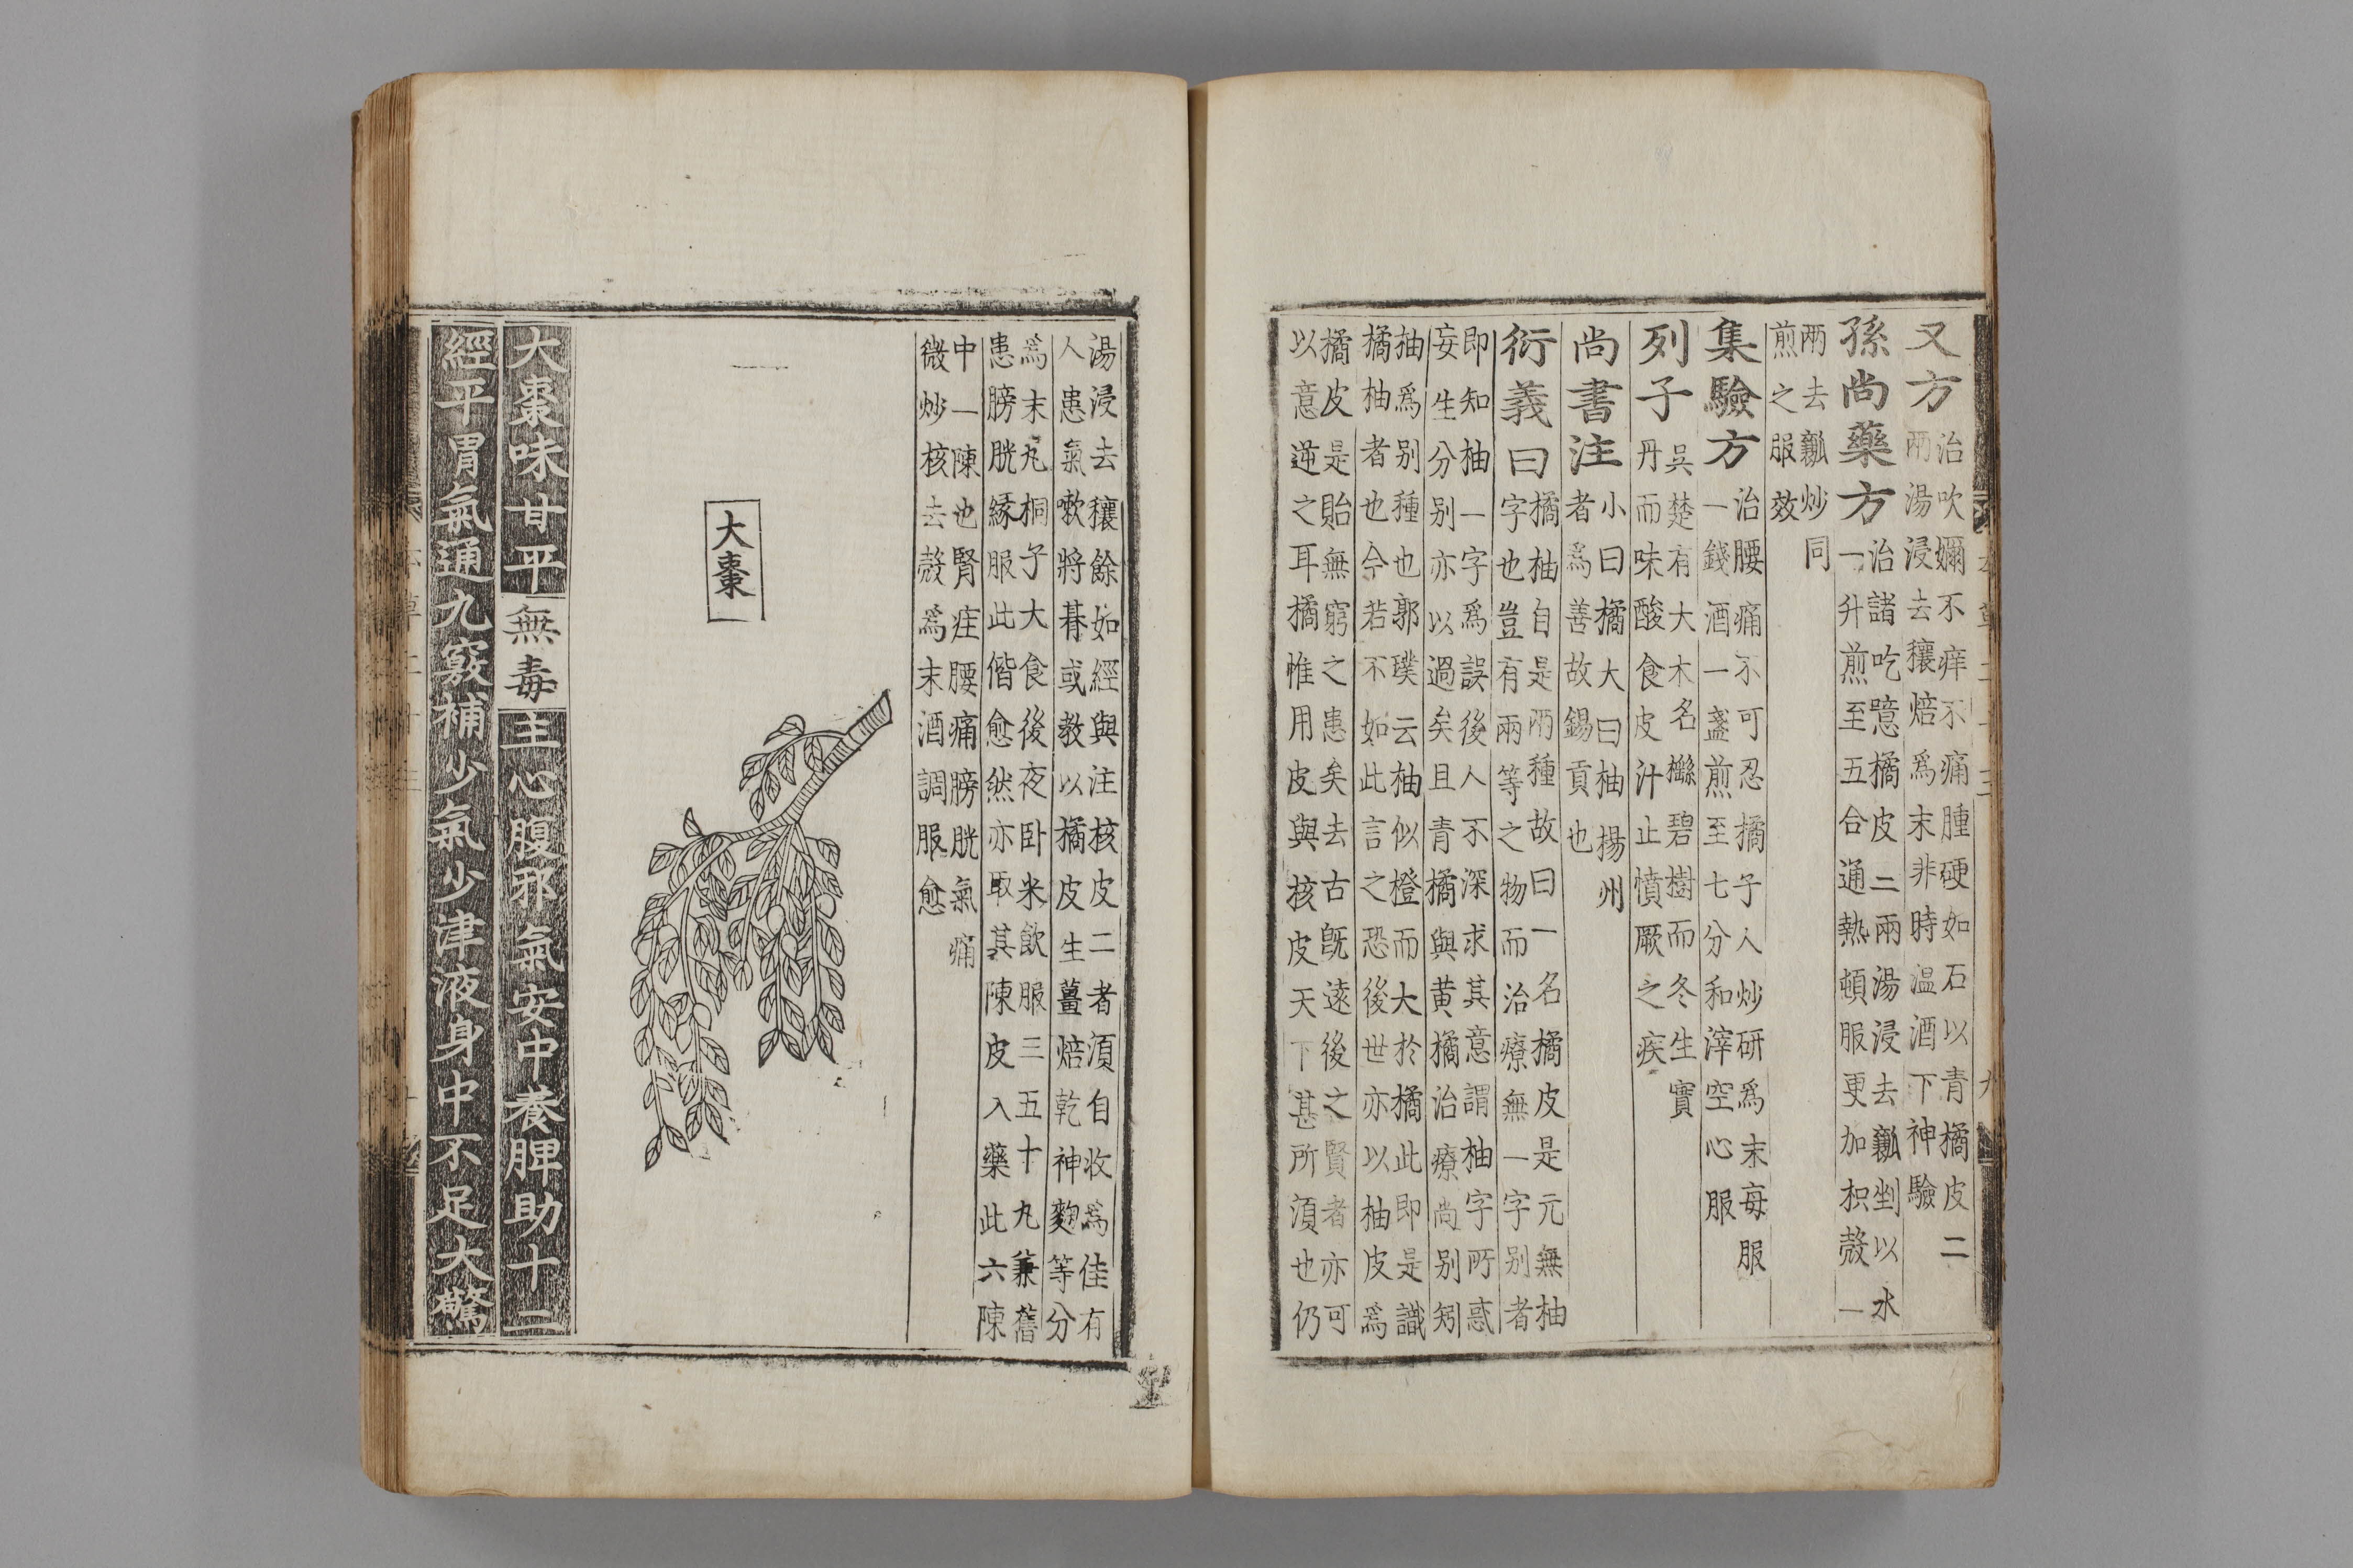 又方
治吹嬭不痒不痛腫硬如石以青橘皮二
兩湯浸去穰焙爲末非時温酒下神驗
孫尚藥方
治諸吃噫橘皮二兩湯浸去瓤剉以水
一升煎至五合通熱頓服更加枳殼一
兩去瓤炒同
煎之服效
集驗方
治腰痛不可忍橘子人炒研爲末每服
一錢酒一盞煎至七分和滓空心服
列子
吳楚有大木名櫾碧樹而冬生實
丹而味酸食皮汁止憤厥之疾
尚書注
小曰橘大曰柚揚州
者爲善故錫貢也
衍義曰
橘柚自是兩種故曰一名橘皮是元無柚
字也豈有兩等之物而治療無一字别者
即知柚一字爲誤後人不深求其意謂柚字所惑
妄生分别亦以過矣且青橘與黄橘治療尚别矧
柚爲别種也郭璞云柚似橙而大於橘此即是識
橘柚者也今若不如此言之恐後世亦以柚皮爲
橘皮是貽無窮之患矣去古既遠後之賢者亦可
以意逆之耳橘惟用皮與核皮天下甚所須也仍
湯浸去穰餘如經與注核皮二者須自收爲佳有
人患氣嗽將朞或教以橘皮生薑焙乾神麴等分
爲末丸桐子大食後夜卧米飲服三五十丸兼舊
患膀胱緣服此偕愈然亦取其陳皮入藥此六陳
中一陳也腎疰腰痛膀胱氣痛
微炒核去殼爲末酒調服愈
大棗
大棗味甘平無毒主心腹邪氣安中養脾助十二
經平胃氣通九竅補少氣少津液身中不足大驚